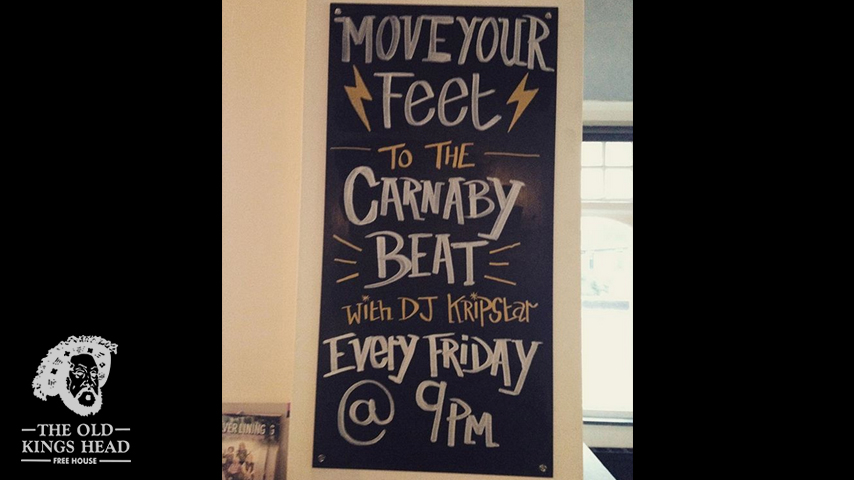 MOVE YOUR
Feet
TO THE
CARNABY
BEAT
with DJ KRiPStar
EVERy FRiDAY
@ 9PM
VER LINING
THE OLD
KINGS HEAD
FREE HOUSE